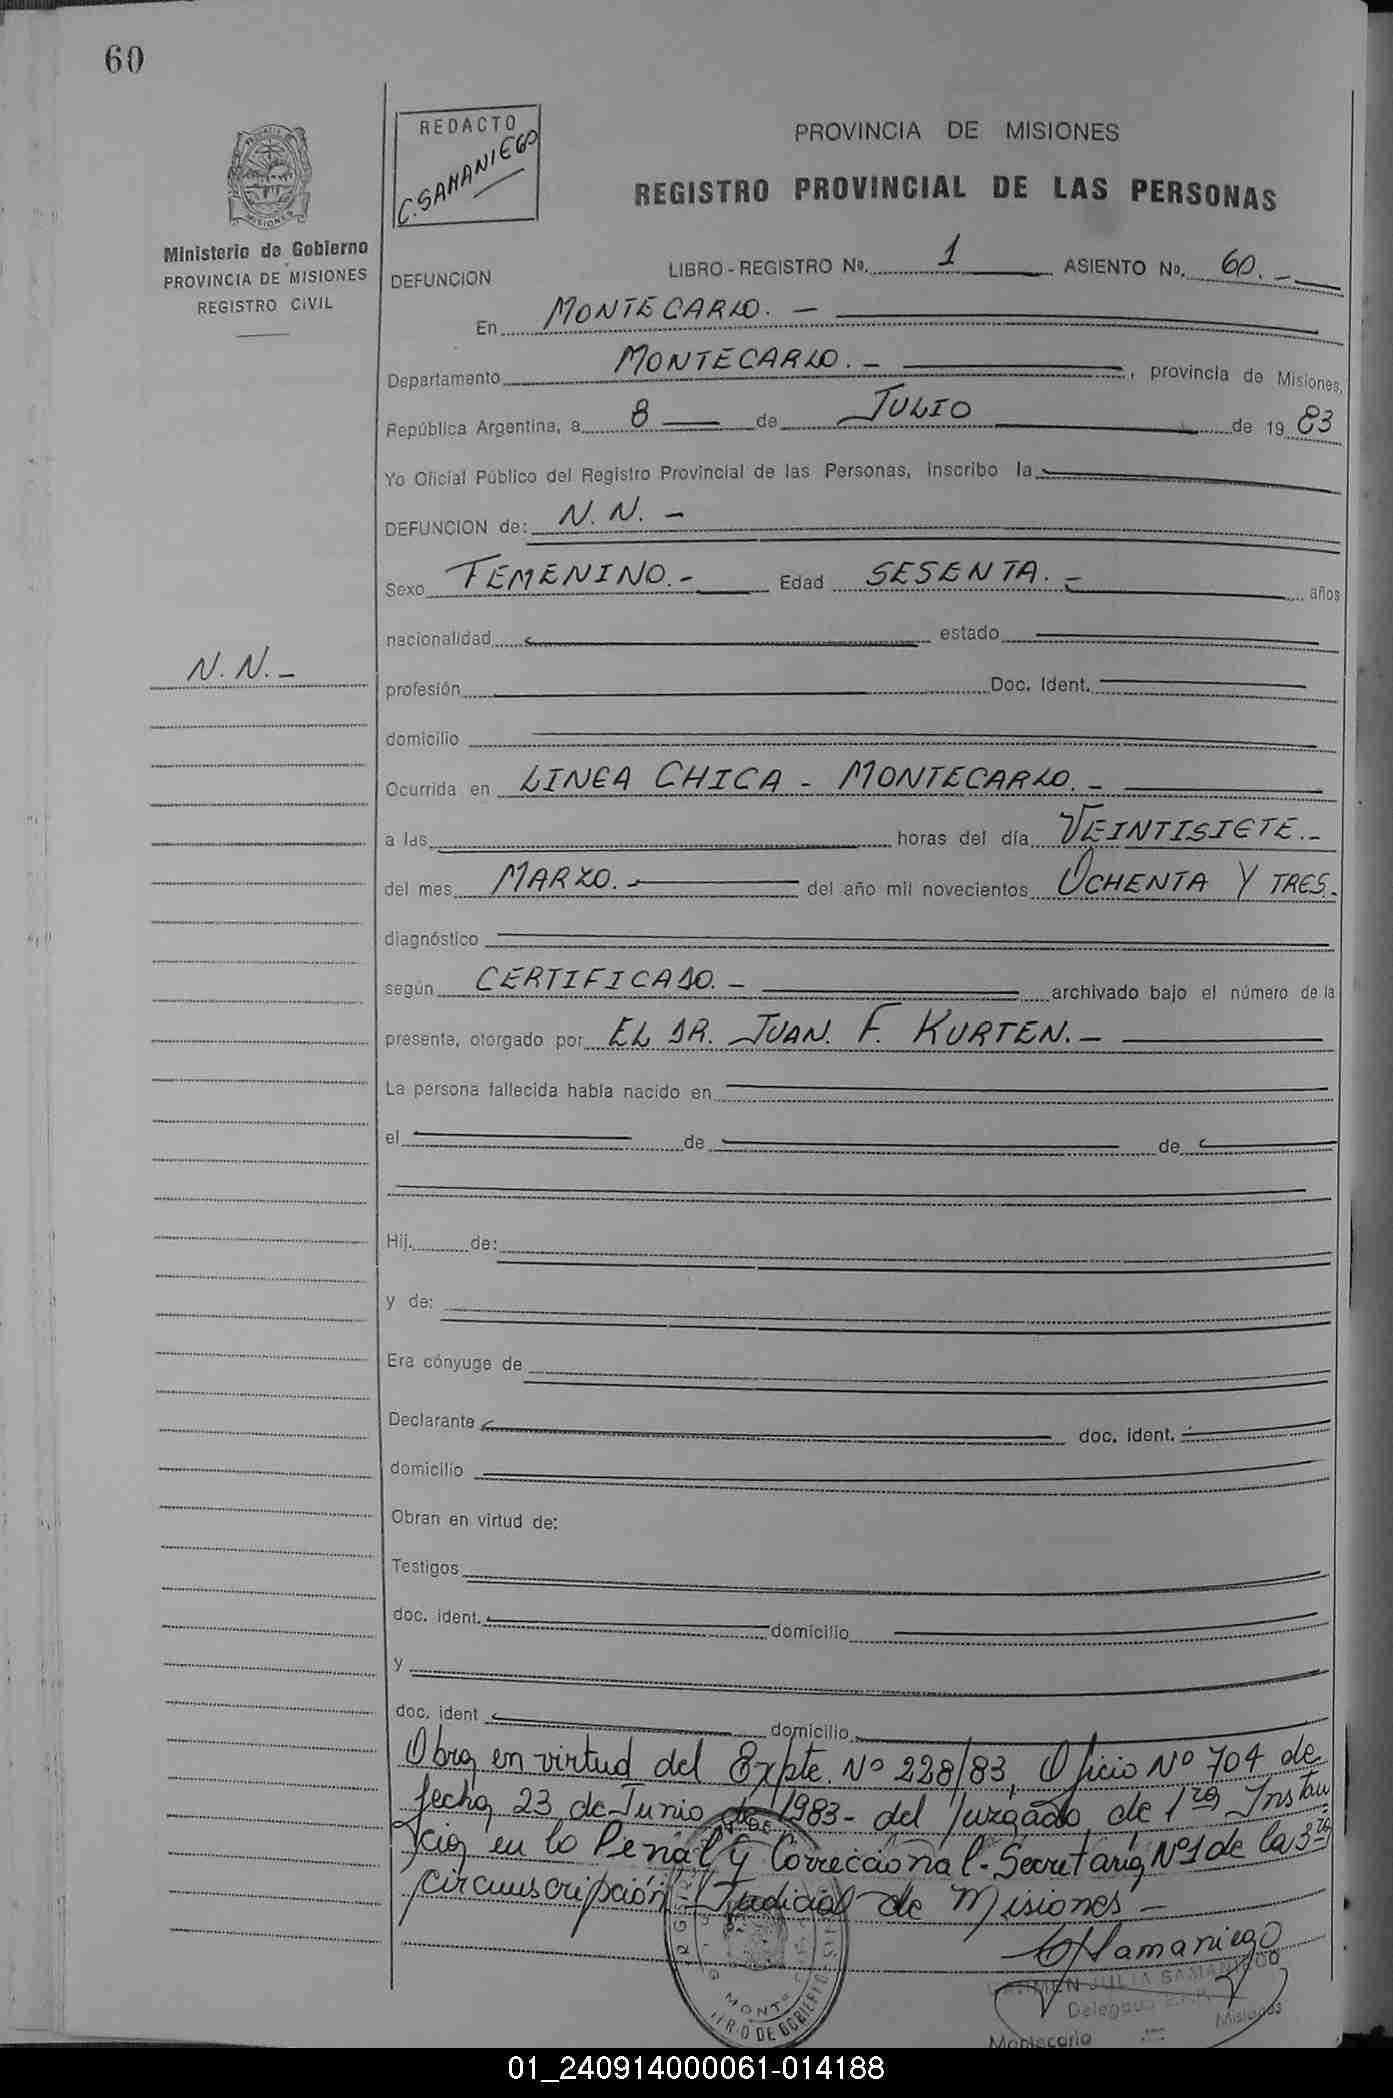 60
REDACTO
C. SAMANIEGO
PROVINCIA DE MISIONES
REGISTRO PROVINCIAL DE LAS PERSONAS
Ministerio de Gobierno
PROVINCIA DE MISIONES
REGISTRO CIVIL
DEFUNCION
LIBRO - REGISTRO No. 1 ASIENTO No. 60. -
En MONTECARLO. -
Departamento MONTECARLO. - , provincia de Misiones,
República Argentina, a 8 de JULIO de 19 83
Yo Oficial Público del Registro Provincial de las Personas, inscribo la
DEFUNCION de: N. N. -
Sexo FEMENINO. - Edad SESENTA. - años
nacionalidad estado
N. N. -
profesión Doc. Ident.
domicilio
Ocurrida en LINEA CHICA - MONTECARLO. -
a las horas del día VEINTISIETE. -
del mes MARZO. - del año mil novecientos OCHENTA Y TRES. -
diagnóstico
según CERTIFICADO. - archivado bajo el número de la
presente, otorgado por EL DR. JUAN. F. KURTEN. -
La persona fallecida había nacido en
el de de
Hij. de:
y de:
Era cónyuge de
Declarante doc. ident.
domicilio
Obran en virtud de:
Testigos
doc. ident. domicilio
y
doc. ident domicilio
Obra en virtud del Expte. Nº 228/83, Oficio Nº 704 de
fecha 23 de Junio de 1983 - del Juzgado de 1ra Instan
cia en lo Penal y Correccional - Secretaría Nº1 de la 3ra
circunscripción Judicial de Misiones -
CJSamaniego
CARMEN JULIA SAMANIEGO
Montecarlo Misiones
01_240914000061-014188